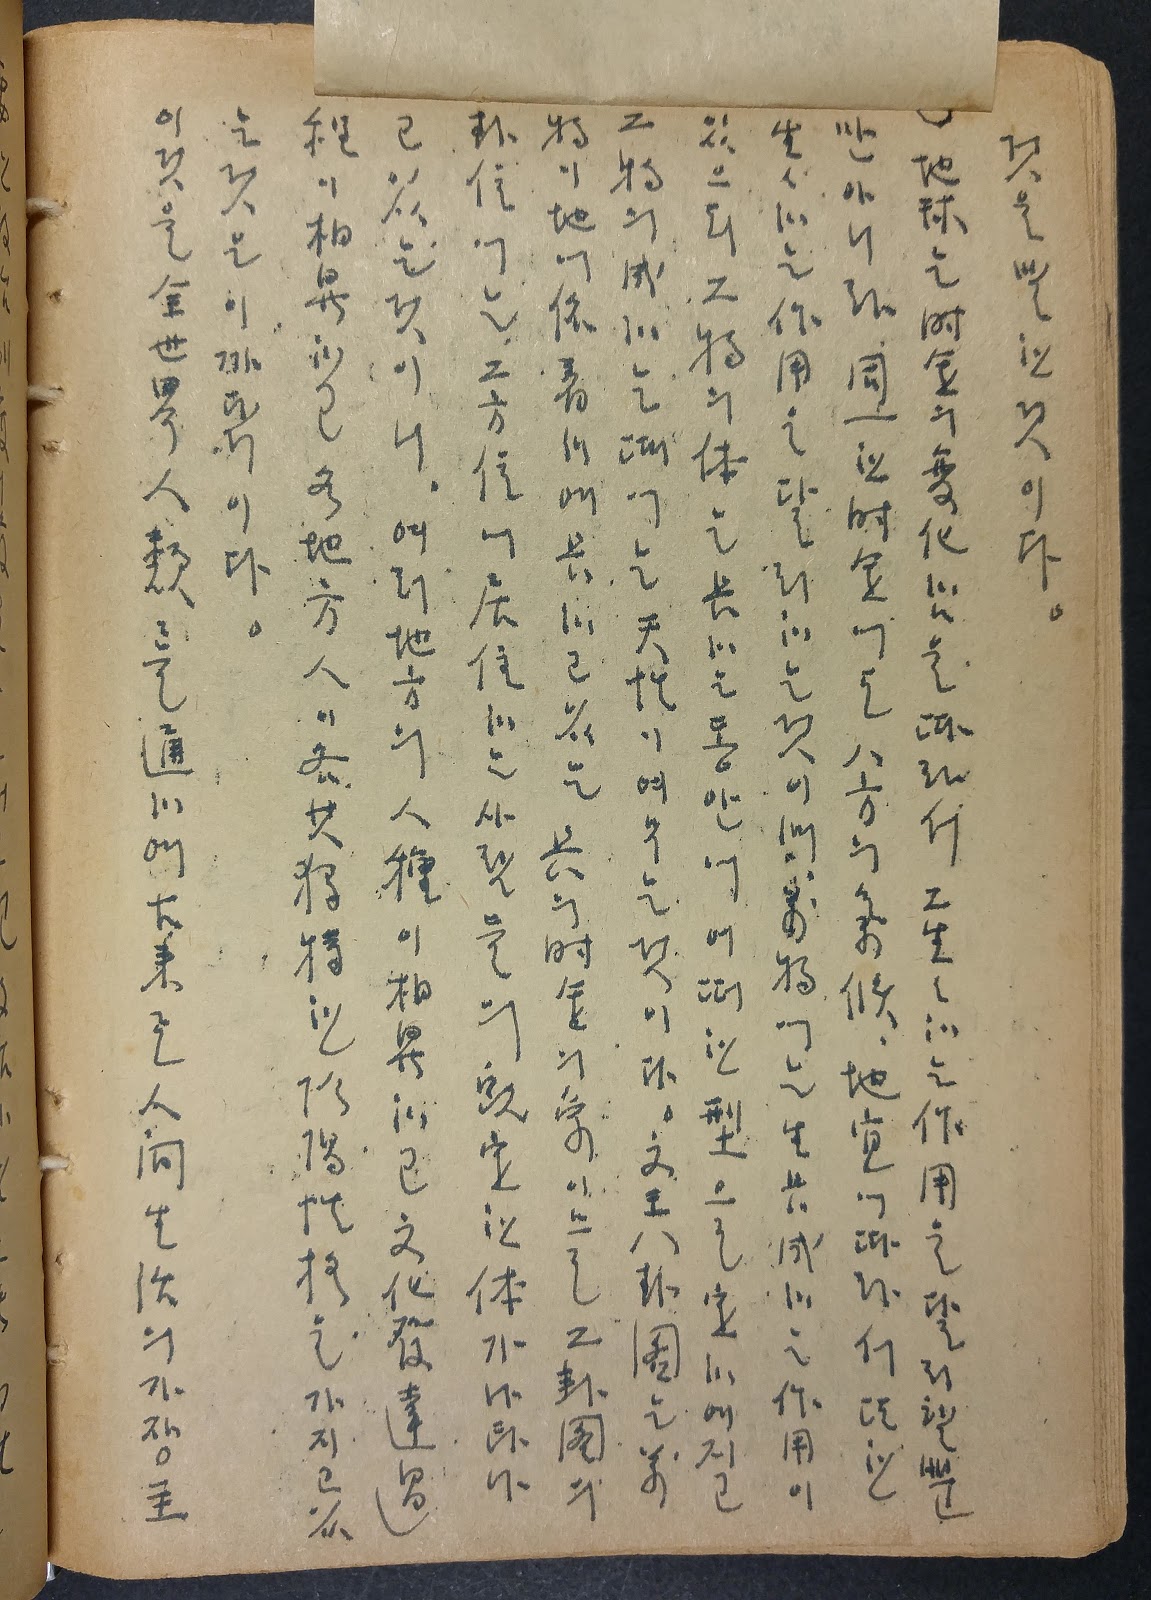 것을 뿐한 것이다.
地球는 時間의 変化함을 따라서 그 生々하는 作用을 달리할 뿐
만 아니라. 同一한 時間에도 八方의 氣候, 地宜에 따라서 또한
生々하는 作用을 달리하는 것이매, 萬物에는 生長成하는 作用이
있으되 그 物의 体는 長하는 동안에 어떠한 型으로 定하여지고
그 物의 成하는 때에는 天性이 여무는 것이다. 文王八卦圖는 萬
物이 地에 依着하여 長하고 있는 長의 時間의 象이므로 그 卦圖의
卦位에는 그 方位에 居住하는 사람들의 定한 体가 나타나
고 있는 것이니. 여러 地方의 人種이 相異하고 文化發達過
程이 相異하고 各地方人이 各其 獨特한 陰陽性格을 가지고 있
는 것은 이 까닭이다.
이것을 全世界人類를 通하여 古來로 人間生活의 가장 主